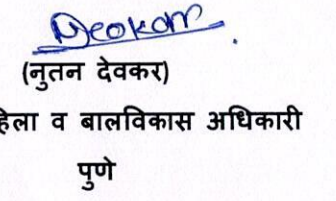 Deokar
(नुतन देवकर)
हिला व बालविकास अधिकारी
पुणे